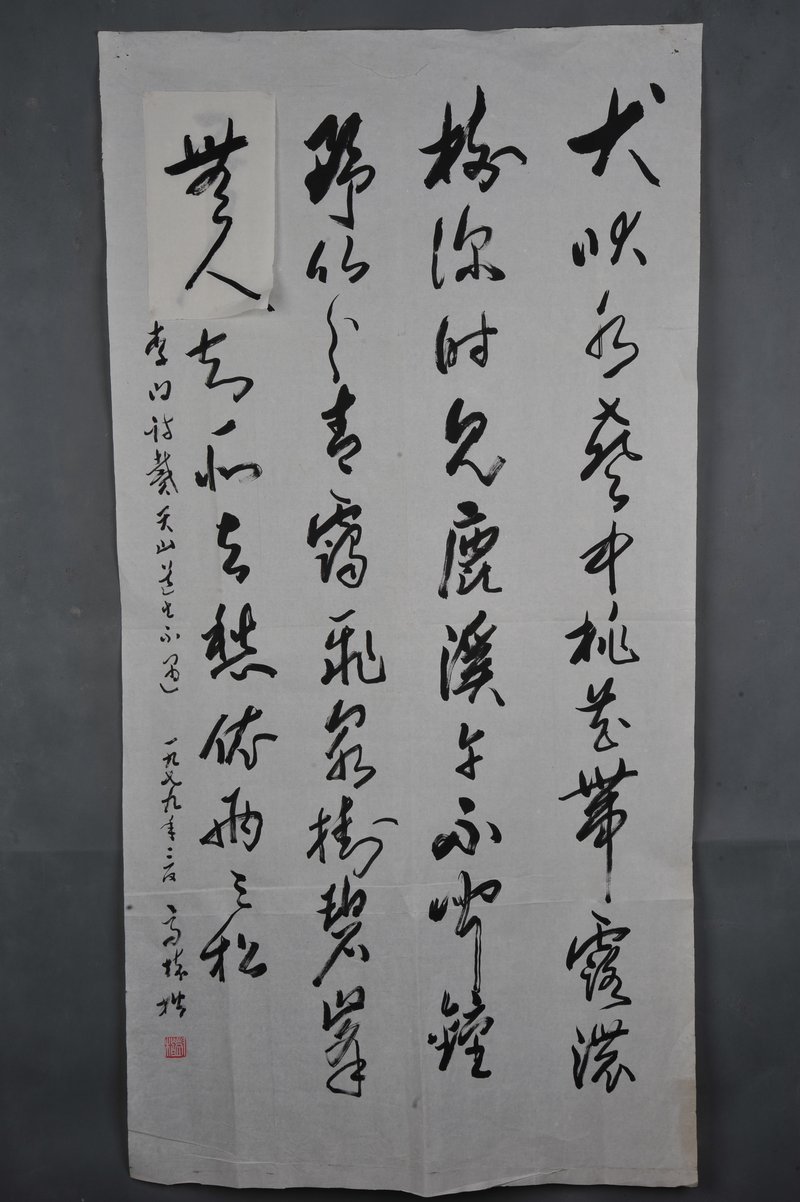 犬吠水聲中桃花帶露濃
樹深时見鹿溪午不聞鐘
野竹分青靄飛泉樹碧峯
無人知所去愁依兩三松
李白詩戴天山道士不遇 一九七九年 高